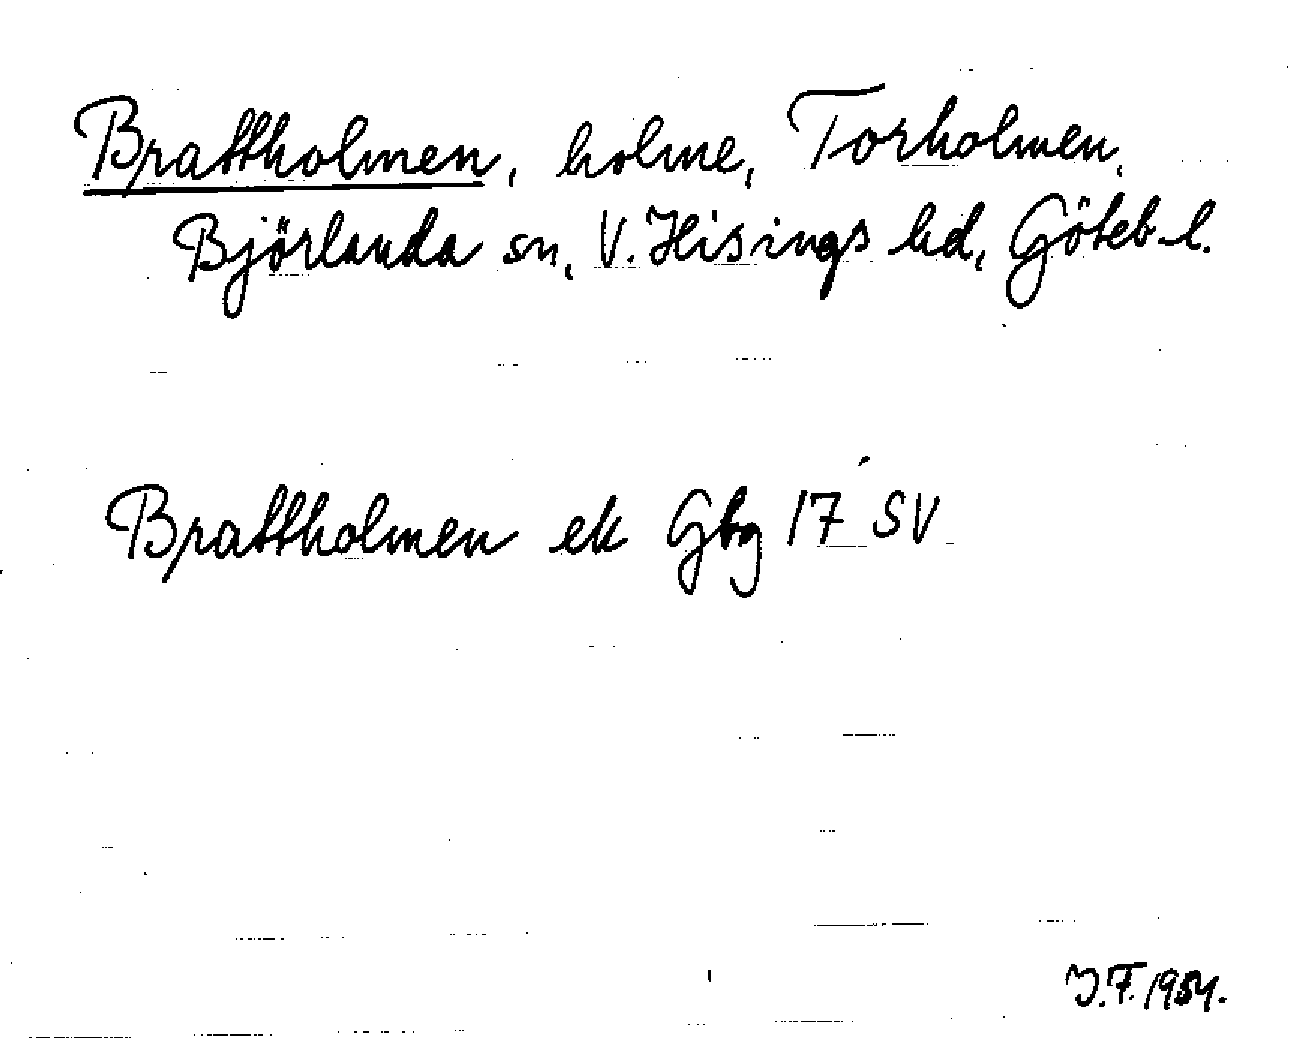 Brattholmen, holme, Torholmen,
Björlanda sn, V. Hisings hd, Göteb. l.
Brattholmen ek Gbg 17 SV
J.F. 1954.